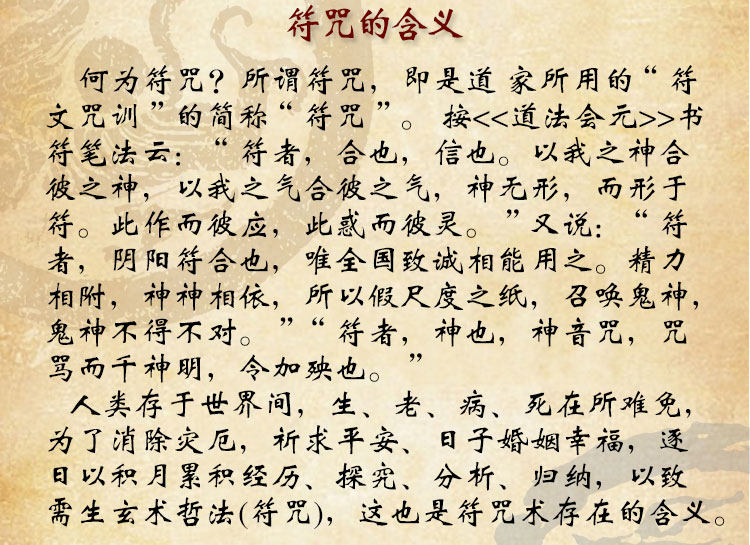 符咒的含义
何为符咒？所谓符咒，即是道 家所用的“符
文咒训”的简称“符咒”。按<<道法会元>>书
符笔法云：“符者，合也，信也。以我之神合
彼之神，以我之气合彼之气，神无形，而形于
符。此作而彼应，此惑而彼灵。”又说：“符
者，阴阳符合也，唯全国致诚相能用之。精力
相附，神神相依，所以假尺度之纸，召唤鬼神，
鬼神不得不对。”“符者，神也，神音咒，咒
骂而千神明，令加殃也。”
人类存于世界间，生、老、病、死在所难免，
为了消除灾厄，祈求平安、日子婚姻幸福，逐
日以积月累积经历、探究、分析、归纳，以致
需生玄术哲法(符咒)，这也是符咒术存在的含义。